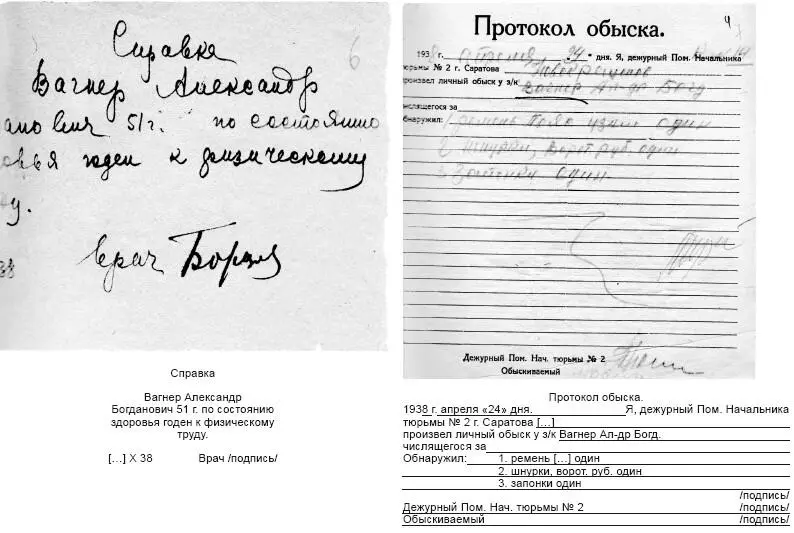 Справка
Вагнер Александр
51 г. по состоянию
овья годен к физическому
у.
врач
6
4
Протокол обыска.
193 г. апреля „24" дня. Я, дежурный Пом. Начальника
тюрьмы № 2 г. Саратова
произвел личный обыск у з/к Вагнер Ал-др Богд
числящегося за
обнаружил: 1 ремень один
2 шнурки, ворот. руб. один
3 Запонки один
Дежурный Пом. Нач. тюрьмы № 2
Обыскиваемый
Справка
Вагнер Александр
Богданович 51 г. по состоянию
здоровья годен к физическому
труду.
[...] X 38 Врач /подпись/
Протокол обыска.
1938 г. апреля «24» дня. Я, дежурный Пом. Начальника
тюрьмы № 2 г. Саратова [...]
произвел личный обыск у з/к Вагнер Ал-др Богд.
числящегося за
Обнаружил: 1. ремень [...] один
2. шнурки, ворот. руб. один
3. запонки один
/подпись/
Дежурный Пом. Нач. тюрьмы № 2 /подпись/
Обыскиваемый /подпись/